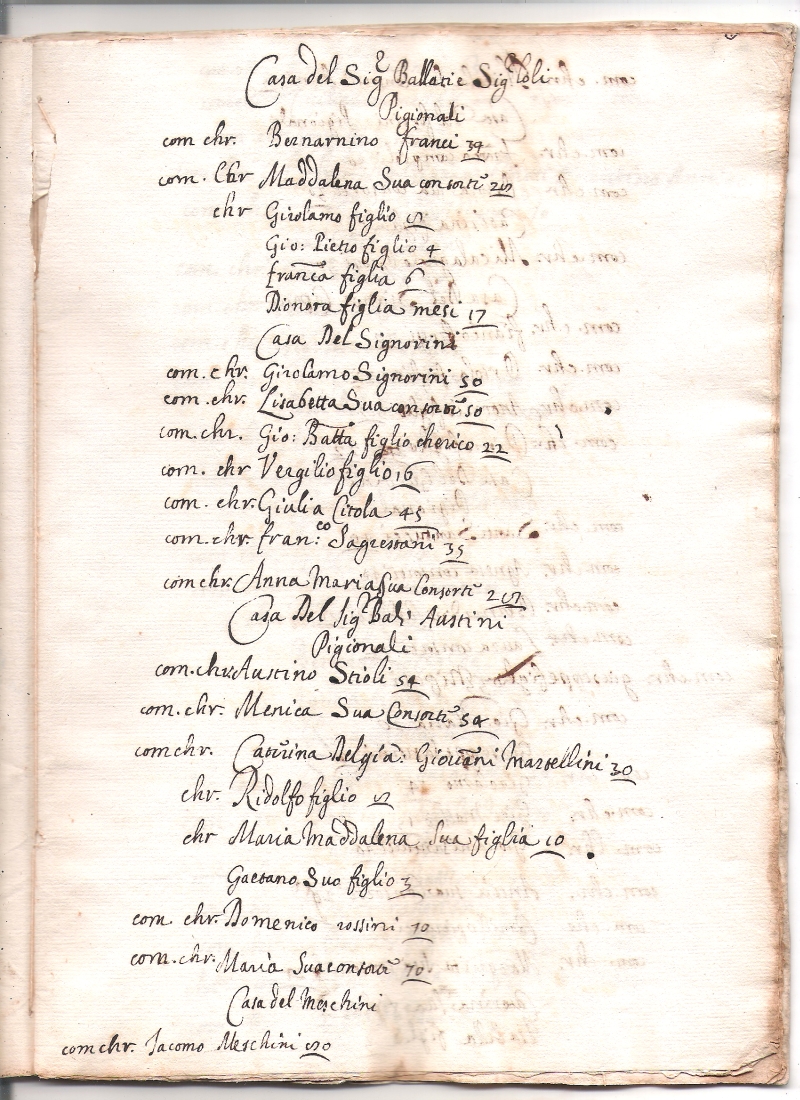 Casa del Sigr Ballati e Sigr Loli
Pigionali
com chr. Bernarnino franci 34
com. Chr Maddalena Sua consorte
chr Girolamo figlio
Gio: Pietro figlio 4
franca figlia 6
Dionora figlia mesi 17
Casa Del Signorini
com. chr. Girolamo Signorini 50
com. chr. Lisabetta Sua consorte 50
com. chr. Gio: Batta figlio cherico 22
com. chr Vergilio figlio 16
com. chr. Giulia Citola 45
com. chr. fran:co Sagrestani 35
com chr. Anna Maria Sua Consorte
Casa Del Sigr Balì Austini
Pigionali
com. chr. Austino Stioli 54
com. chr. Menica Sua Consorte 54
com chr. Caterina Del gia: Giovani Martellini 30
chr. Ridolfo figlio
chr Maria Maddalena Sua figlia 10
Gaetano Suo figlio 3
com. chr. Domenico rossini 70
com. chr. Maria Sua consorte 70
Casa del Meschini
com chr. Jacomo Meschini